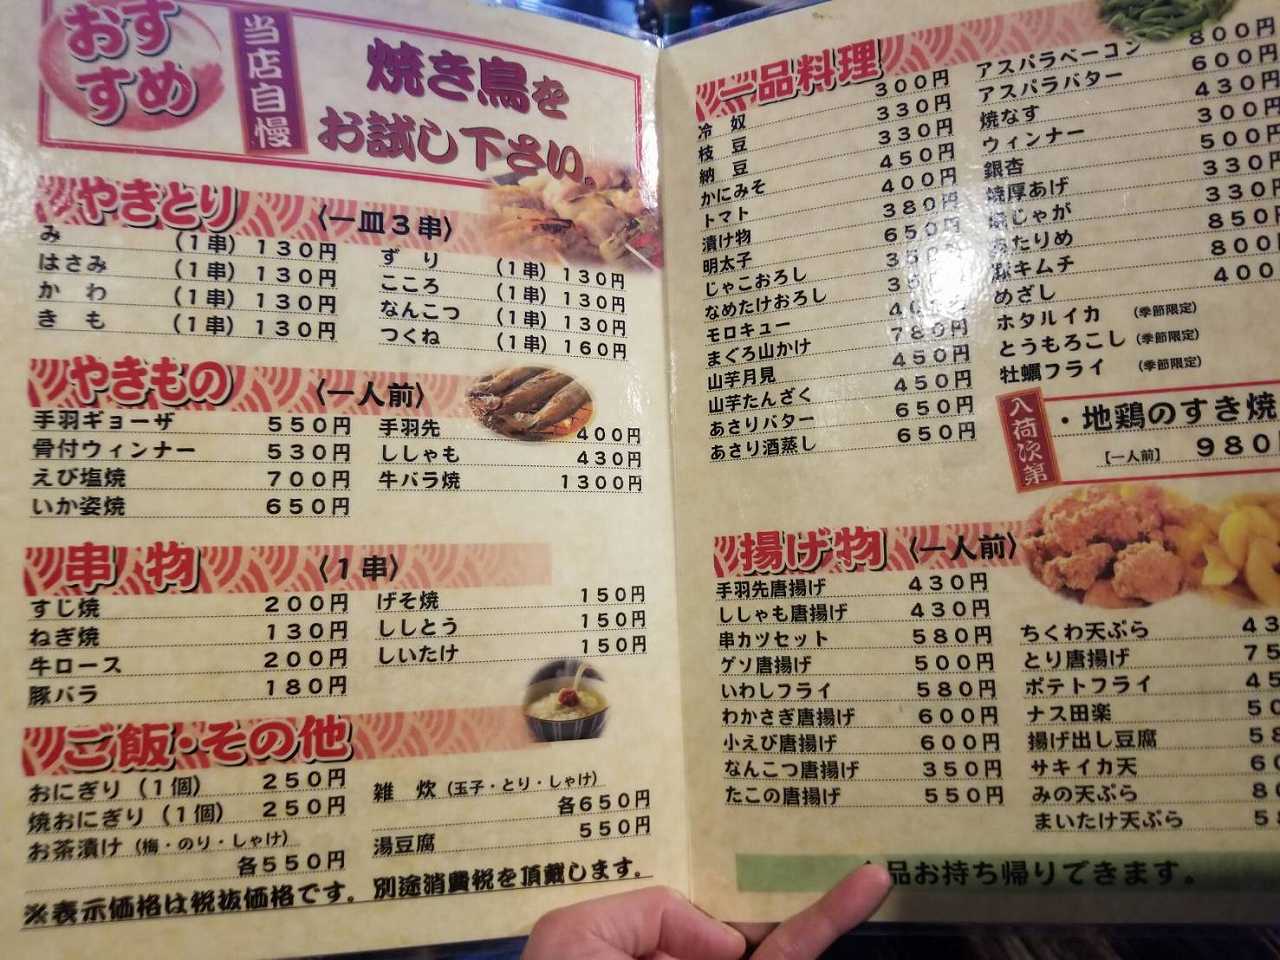 おすすめ
当店自慢
焼き鳥を
お試し下さい。
やきとり 〈一皿3串〉
み (1串) 130円
はさみ (1串) 130円
かわ (1串) 130円
きも (1串) 130円
ずり (1串) 130円
こころ (1串) 130円
なんこつ (1串) 130円
つくね (1串) 160円
やきもの 〈一人前〉
手羽ギョーザ 550円
骨付ウィンナー 530円
えび塩焼 700円
いか姿焼 650円
手羽先 400円
ししゃも 430円
牛バラ焼 1300円
串物 〈1串〉
すじ焼 200円
ねぎ焼 130円
牛ロース 200円
豚バラ 180円
げそ焼 150円
ししとう 150円
しいたけ 150円
ご飯・その他
おにぎり(1個) 250円
焼おにぎり(1個) 250円
お茶漬け(梅・のり・しゃけ)
各550円
雑炊(玉子・とり・しゃけ)
各650円
湯豆腐 550円
※表示価格は税抜価格です。別途消費税を頂戴します。
一品料理
冷奴 300円
枝豆 330円
納豆 330円
かにみそ 450円
トマト 400円
漬け物 380円
明太子 650円
じゃこおろし
なめたけおろし
モロキュー
まぐろ山かけ 780円
山芋月見 450円
山芋たんざく 450円
あさりバター 650円
あさり酒蒸し 650円
アスパラベーコン 800円
アスパラバター 600円
焼なす 430円
ウィンナー 300円
銀杏 500円
焼厚あげ 330円
じゃが 330円
あたりめ 850円
キムチ 800
めざし 400
ホタルイカ (季節限定)
とうもろこし (季節限定)
牡蠣フライ (季節限定)
入荷次第
・地鶏のすき焼
【一人前】 980
揚げ物 〈一人前〉
手羽先唐揚げ 430円
ししゃも唐揚げ 430円
串カツセット 580円
ゲソ唐揚げ 500円
いわしフライ 580円
わかさぎ唐揚げ 600円
小えび唐揚げ 600円
なんこつ唐揚げ 350円
たこの唐揚げ 550円
ちくわ天ぷら 43
とり唐揚げ 75
ポテトフライ 45
ナス田楽 50
揚げ出し豆腐 58
サキイカ天 60
みの天ぷら 80
まいたけ天ぷら 58
品お持ち帰りできます。